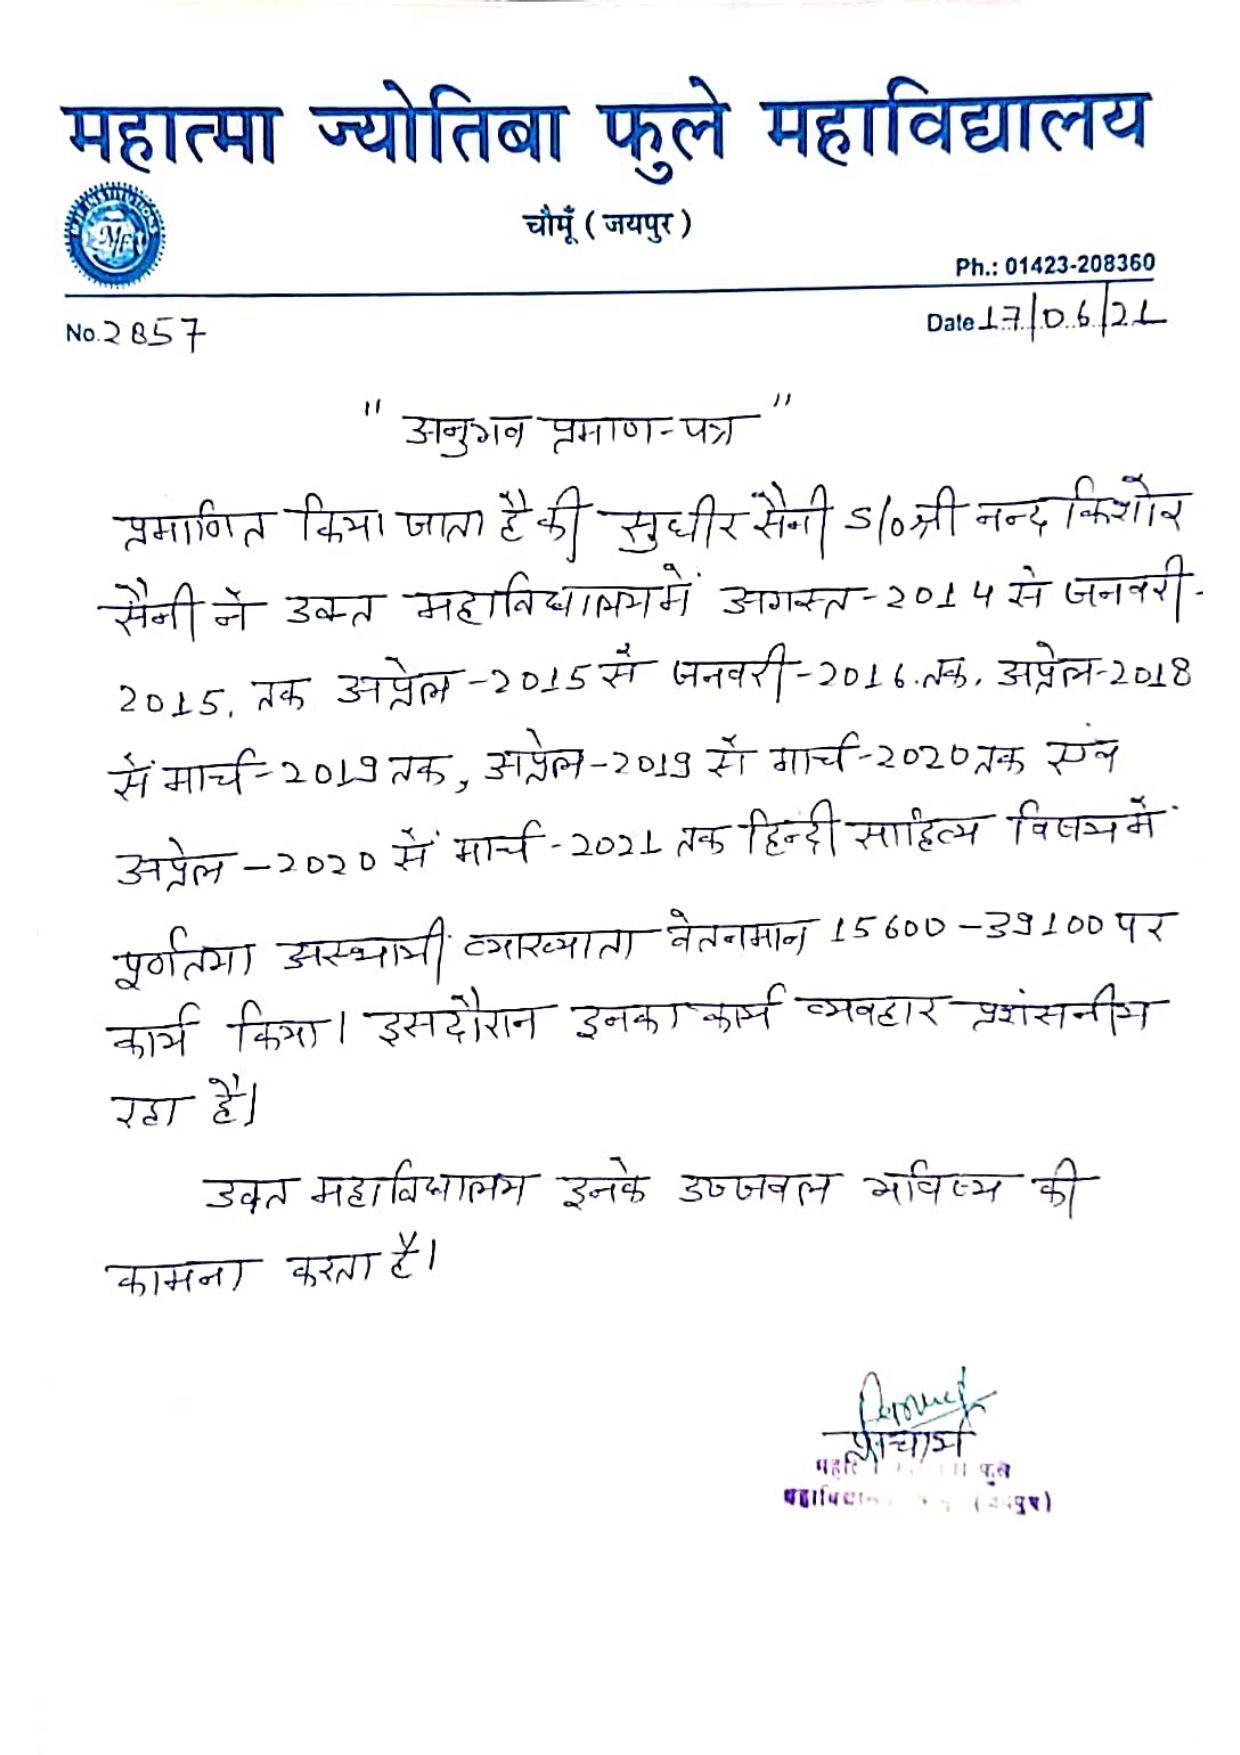 महात्मा ज्योतिबा फुले महाविद्यालय
चौमूँ ( जयपुर )
Ph.: 01423-208360
No. 2857
Date 17/06/21
" अनुभव प्रमाण-पत्र "
प्रमाणित किया जाता है की सुधीर सैनी S/o श्री नन्द किशोर
सैनी ने उक्त महाविद्यालय में अगस्त-2014 से जनवरी-
2015. तक अप्रेल-2015 से जनवरी-2016. तक. अप्रेल-2018
से मार्च-2019 तक, अप्रेल-2019 से मार्च-2020 तक एवं
अप्रेल-2020 से मार्च-2021 तक हिन्दी साहित्य विषय में
पूर्णतया अस्थायी व्याख्याता वेतनमान 15600-39100 पर
कार्य किया। इस दौरान इनका कार्य व्यवहार प्रशंसनीय
रहा है।
उक्त महाविद्यालय इनके उज्जवल भविष्य की
कामना करता है।
प्राचार्य
फुले